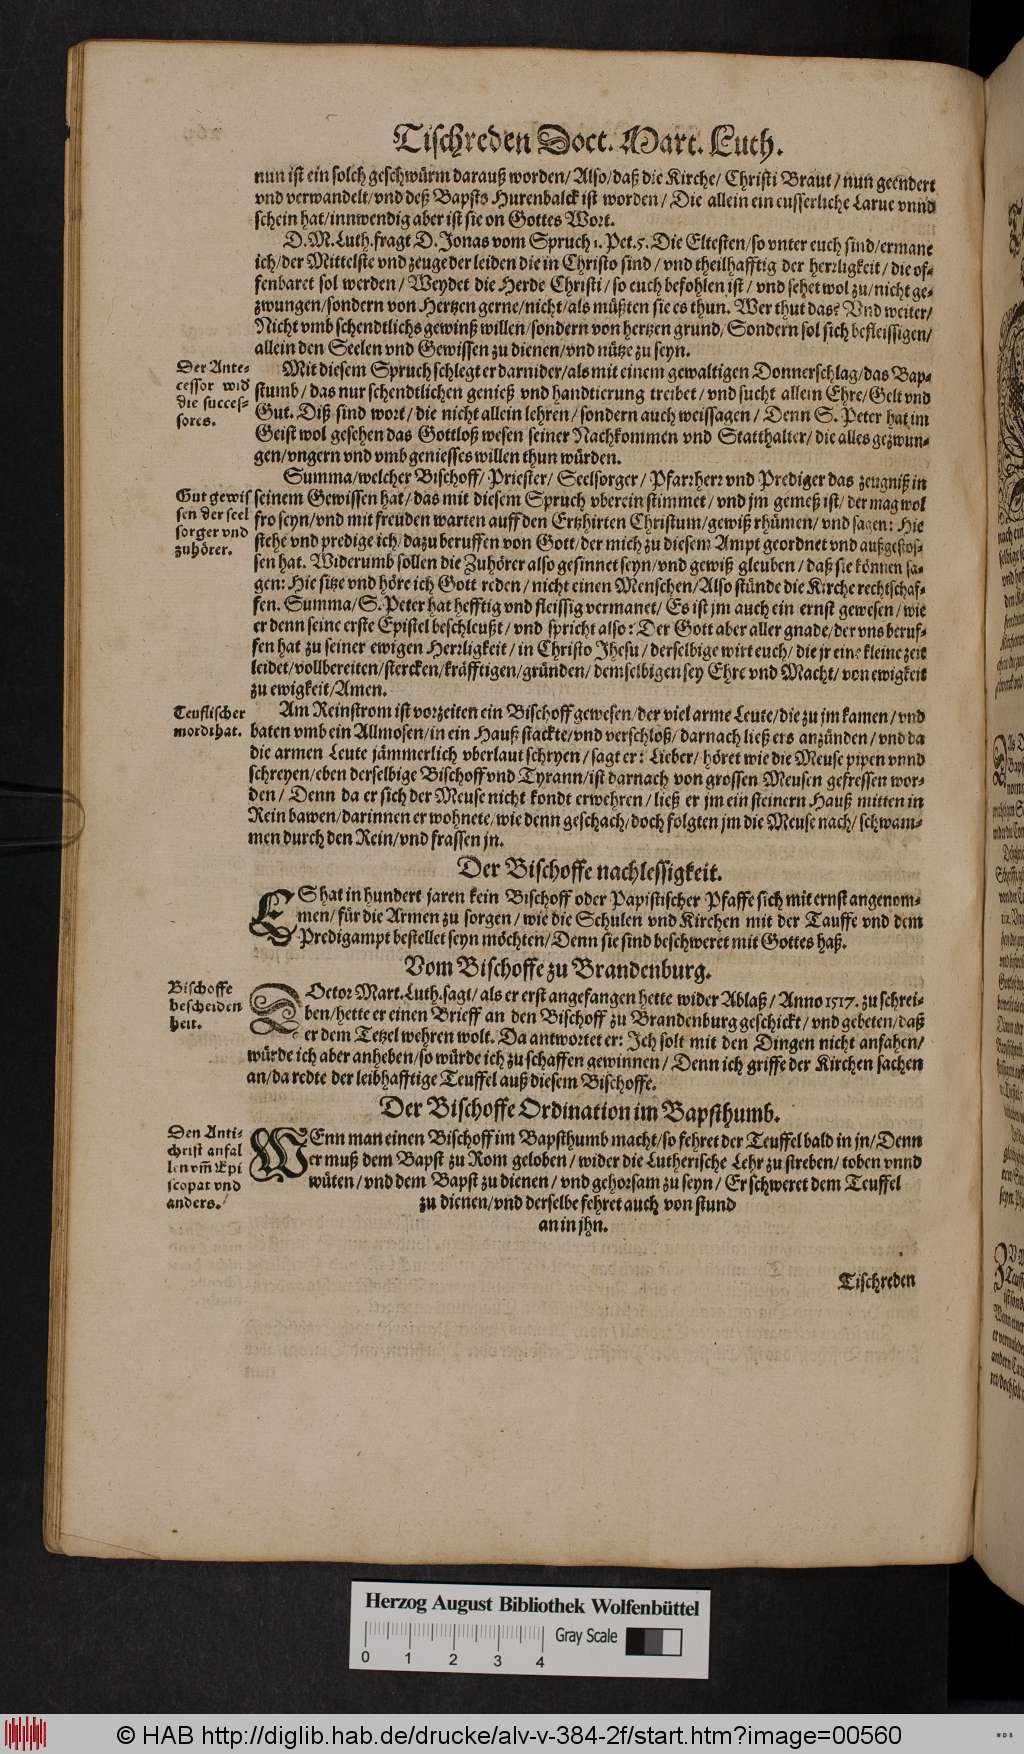 Tischreden Doct. Mart. Luth.
nun ist ein solch geschwürm darauß worden/ Also/ daß die Kirche/ Christi Braut/ nun geendert
vnd verwandelt/ vnd deß Bapsts Hurenbalck ist worden/ Die allein ein eusserliche Larue vnnd
schein hat/ innwendig aber ist sie on Gottes Wort.
D. M. Luth. fragt D. Jonas vom Spruch 1. Pet. 5. Die Eltesten/ so vnter euch sind/ ermane
ich/ der Mittelste vnd zeuge der leiden die in Christo sind/ vnd theilhafftig der herrligkeit/ die of-
fenbaret sol werden/ Weydet die Herde Christi/ so euch befohlen ist/ vnd sehet wol zu/ nicht ge-
zwungen/ sondern von Hertzen gerne/ nicht/ als müßten sie es thun. Wer thut das? Vnd weiter/
Nicht vmb schendtlichs gewinß willen/ sondern von hertzen grund/ Sondern sol sich befleissigen/
allein den Seelen vnd Gewissen zu dienen/ vnd nütze zu seyn.
Der Ante-
cessor wid
die succes-
sores.
Mit diesem Spruch schlegt er darnider/ als mit einem gewaltigen Donnerschlag/ das Bap-
stumb/ das nur schendtlichen genieß vnd handtierung treibet/ vnd sucht allein Ehre/ Gelt vnd
Gut. Diß sind wort/ die nicht allein lehren/ sondern auch weissagen/ Denn S. Peter hat im
Geist wol gesehen das Gottloß wesen seiner Nachkommen vnd Statthalter/ die alles gezwun-
gen/ vngern vnd vmb geniesses willen thun würden.
Gut gewis
sen der seel
sorger vnd
zuhörer.
Summa/ welcher Bischoff/ Priester/ Seelsorger/ Pfarrherr vnd Prediger das zeugniß in
seinem Gewissen hat/ das mit diesem Spruch vberein stimmet/ vnd jm gemeß ist/ der mag wol
fro seyn/ vnd mit freuden warten auff den Ertzhirten Christum/ gewiß rhümen/ vnd sagen: Hie
stehe vnd predige ich/ dazu beruffen von Gott/ der mich zu diesem Ampt geordnet vnd außgestos-
sen hat. Widerumb sollen die Zuhörer also gesinnet seyn/ vnd gewiß gleuben/ daß sie können sa-
gen: Hie sitze vnd höre ich Gott reden/ nicht einen Menschen/ Also stünde die Kirche rechtschaf-
fen. Summa/ S. Peter hat hefftig vnd fleissig vermanet/ Es ist jm auch ein ernst gewesen/ wie
er denn seine erste Epistel beschleußt/ vnd spricht also: Der Gott aber aller gnade/ der vns beruf-
fen hat zu seiner ewigen Herrligkeit/ in Christo Jhesu/ derselbige wirt euch/ die jr eine kleine zeit
leidet/ vollbereiten/ stercken/ kräfftigen/ gründen/ demselbigen sey Ehre vnd Macht/ von ewigkeit
zu ewigkeit/ Amen.
Teuflischer
mordthat.
Am Reinstrom ist vorzeiten ein Bischoff gewesen/ der viel arme Leute/ die zu jm kamen/ vnd
baten vmb ein Allmosen/ in ein Hauß stackte/ vnd verschloß/ darnach ließ ers anzünden/ vnd da
die armen Leute jämmerlich vberlaut schryen/ sagt er: Lieber/ höret wie die Meuse pipen vnnd
schreyen/ eben derselbige Bischoff vnd Tyrann/ ist darnach von grossen Meusen gefressen wor-
den/ Denn da er sich der Meuse nicht kondt erwehren/ ließ er jm ein steinern Hauß mitten in
Rein bawen/ darinnen er wohnete/ wie denn geschach/ doch folgten jm die Meuse nach/ schwam-
men durch den Rein/ vnd frassen jn.
Der Bischoffe nachlessigkeit.
ES hat in hundert jaren kein Bischoff oder Papistischer Pfaffe sich mit ernst angenom-
men/ für die Armen zu sorgen/ wie die Schulen vnd Kirchen mit der Tauffe vnd dem
Predigampt bestellet seyn möchten/ Denn sie sind beschweret mit Gottes haß.
Vom Bischoffe zu Brandenburg.
Bischoffe
bescheiden
heit.
DOctor Mart. Luth. sagt/ als er erst angefangen hette wider Ablaß/ Anno 1517. zu schrei-
ben/ hette er einen Brieff an den Bischoff zu Brandenburg geschickt/ vnd gebeten/ daß
er dem Tetzel wehren wolt. Da antwortet er: Ich solt mit den Dingen nicht anfahen/
würde ich aber anheben/ so würde ich zu schaffen gewinnen/ Denn ich griffe der Kirchen sachen
an/ da redte der leibhafftige Teuffel auß diesem Bischoffe.
Der Bischoffe Ordination im Bapsthumb.
Den Anti-
christ anfal
len vm̄ Epi
scopat vnd
anders.
WEnn man einen Bischoff im Bapsthumb macht/ so fehret der Teuffel bald in jn/ Denn
er muß dem Bapst zu Rom geloben/ wider die Lutherische Lehr zu streben/ toben vnnd
wüten/ vnd dem Bapst zu dienen/ vnd gehorsam zu seyn/ Er schweret dem Teuffel
zu dienen/ vnd derselbe fehret auch von stund
an in jhn.
Tischreden
Herzog August Bibliothek Wolfenbüttel
Gray Scale
0 1 2 3 4
© HAB http://diglib.hab.de/drucke/alv-v-384-2f/start.htm?image=00560